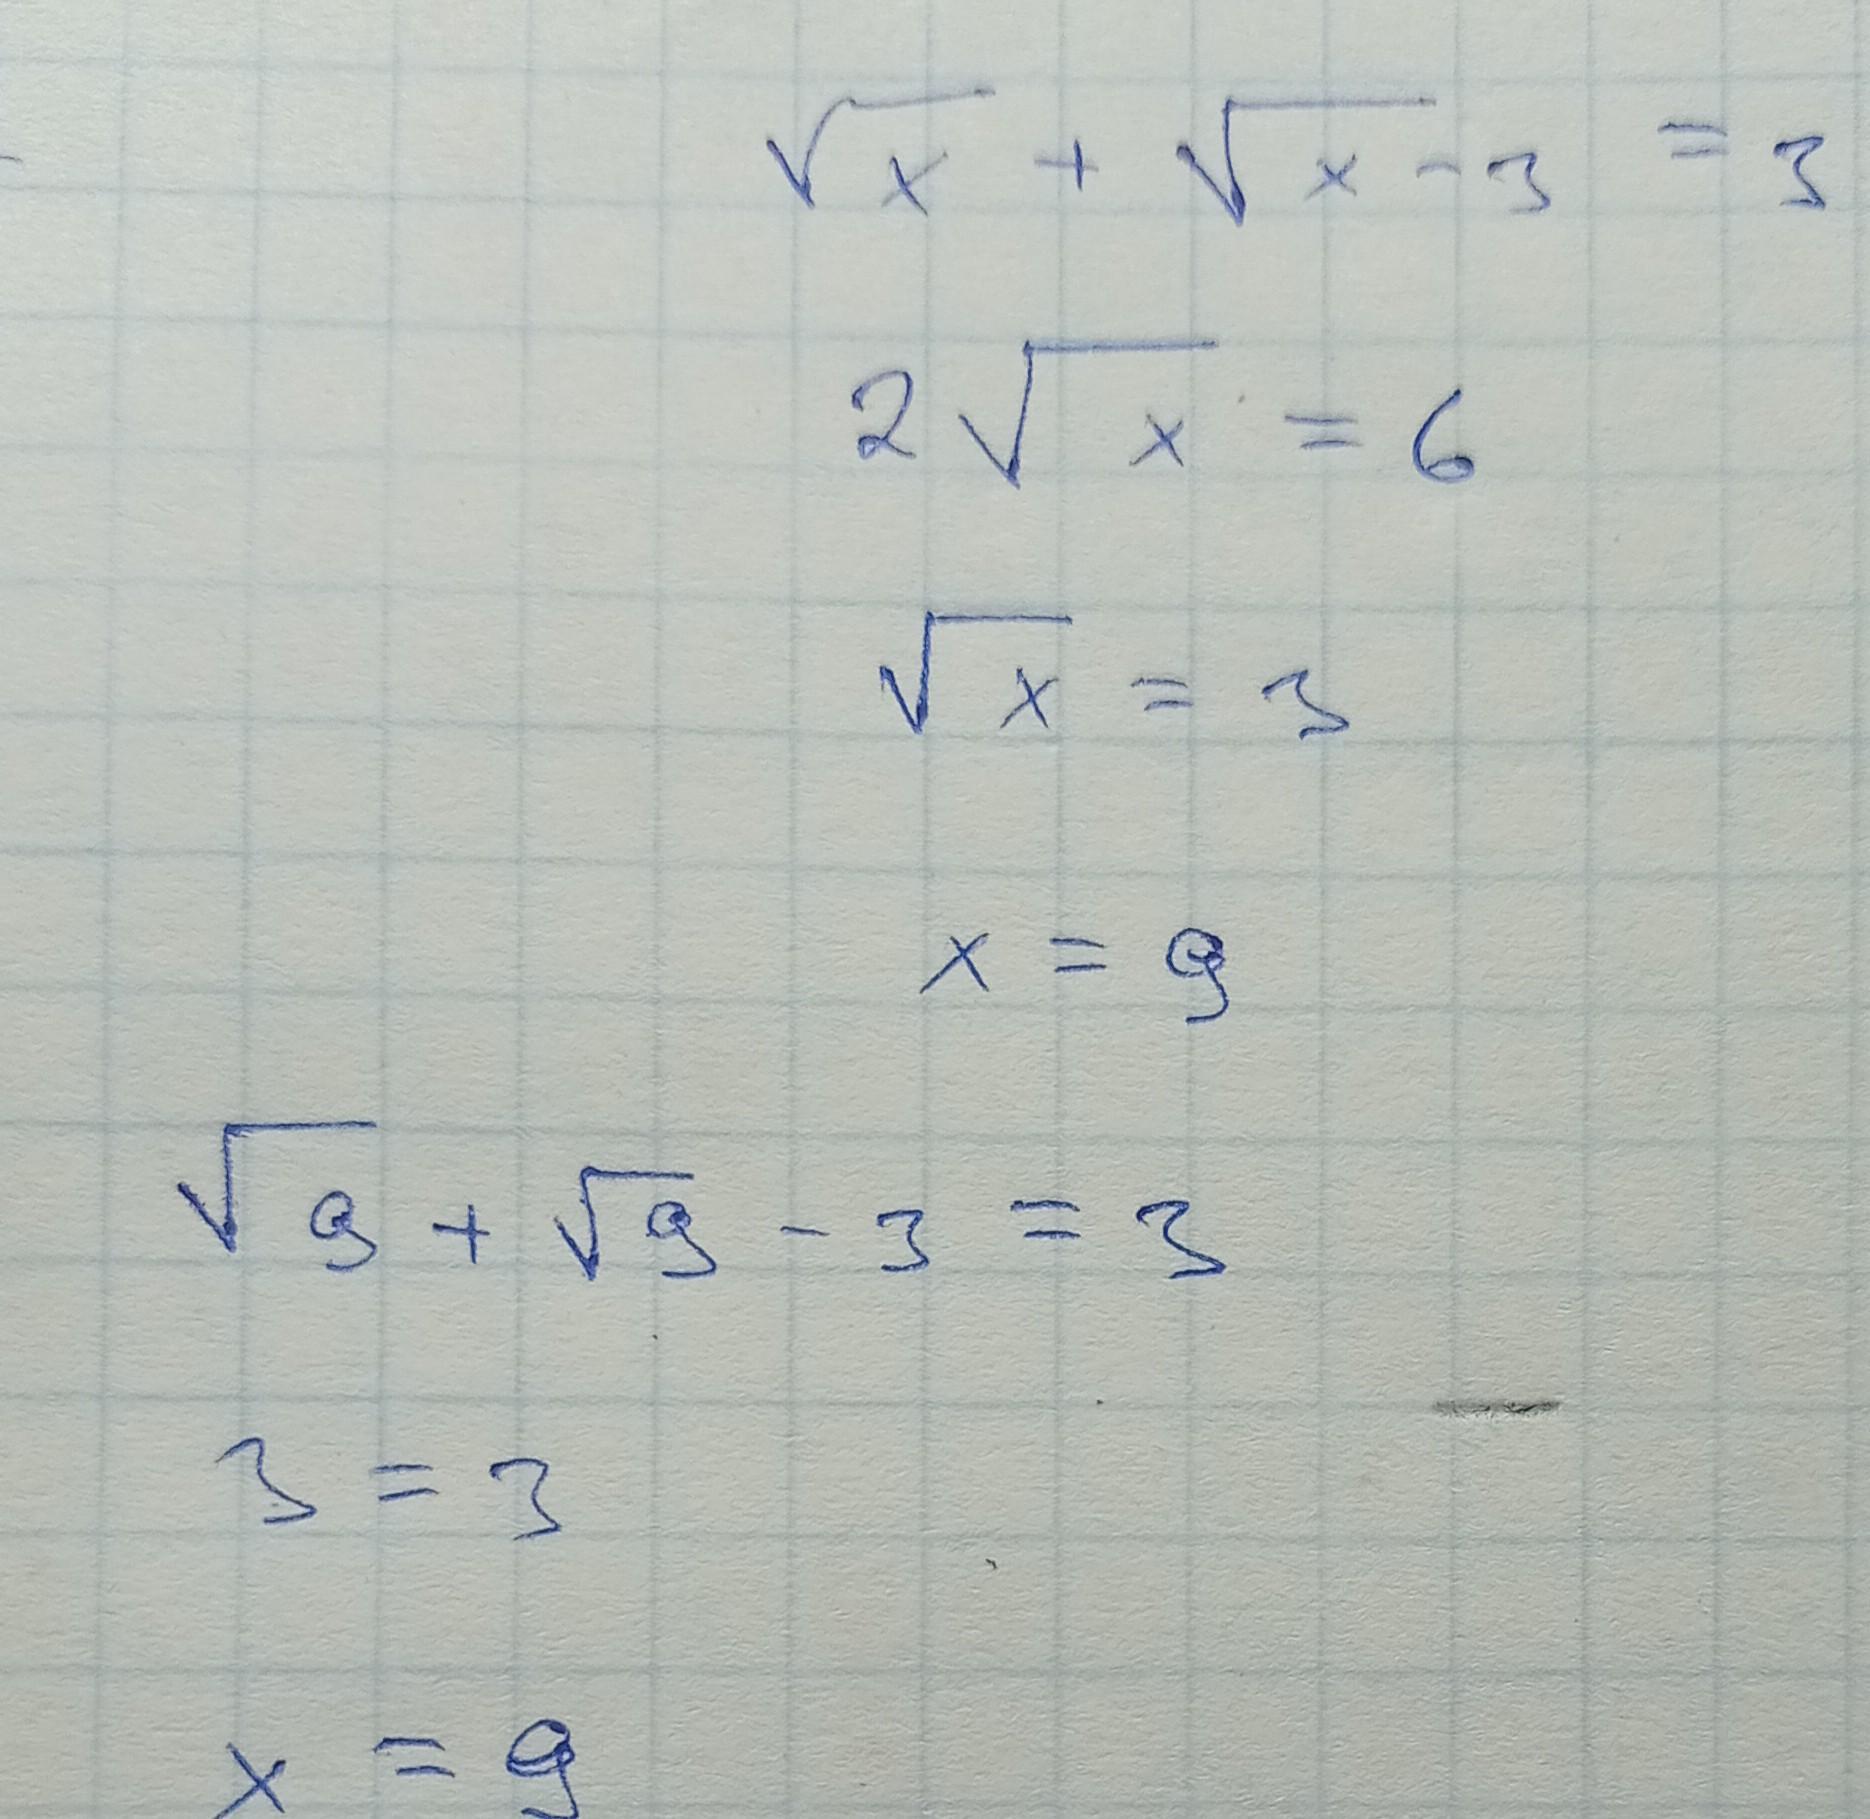 √x + √x - 3 = 3
2√x = 6
√x = 3
x = 9
√9 + √9 - 3 = 3
3 = 3
x = 9